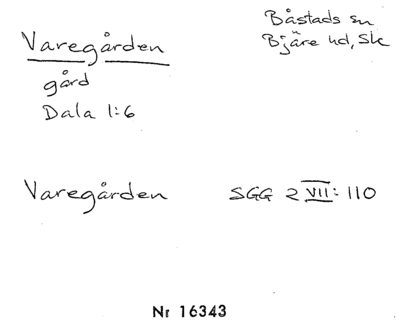 Varegården
Båstads sn
Bjäre hd, Sk
gård
Dala 1:6
Varegården SGG 2 VII: 110
Nr 16343